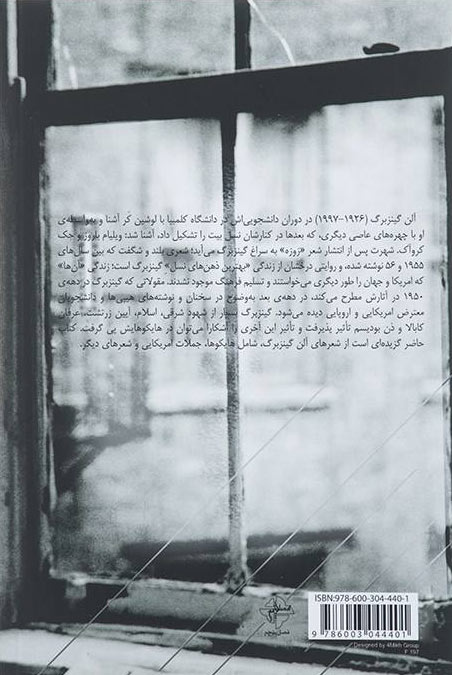 آلن گینزبرگ (۱۹۲۶-۱۹۹۷) در دوران دانشجویی‌اش در دانشگاه کلمبیا با لوشین کر آشنا و به‌واسطه‌ی
او با چهره‌های عاصی دیگری، که بعدها در کنارشان نسل بیت را تشکیل داد، آشنا شد: ویلیام باروز و جک
کرواک. شهرت پس از انتشار شعر «زوزه» به سراغ گینزبرگ می‌آید؛ شعری بلند و شگفت که بین سال‌های
۱۹۵۵ و ۵۶ نوشته شده، و روایتی درخشان از زندگی «بهترین ذهن‌های نسل» گینزبرگ است؛ زندگی «آن‌ها»
که امریکا و جهان را طور دیگری می‌خواستند و تسلیم فرهنگ موجود نشدند. مقولاتی که گینزبرگ در دهه‌ی
۱۹۵۰ در آثارش مطرح می‌کند، در دهه‌ی بعد به‌وضوح در سخنان و نوشته‌های هیپی‌ها و دانشجویان
معترض امریکایی و اروپایی دیده می‌شود. گینزبرگ بسیار از شهود شرقی، اسلام، آیین زرتشت، عرفان
کابالا و ذن بودیسم تأثیر پذیرفت و تأثیر این آخری را آشکارا می‌توان در هایکوهایش پی گرفت. کتاب
حاضر گزیده‌ای است از شعرهای آلن گینزبرگ، شامل هایکوها، جملات امریکایی و شعرهای دیگر.
ISBN:978-600-304-440-1
9 786003 044401
Designed by 4Mikh Group
F 197